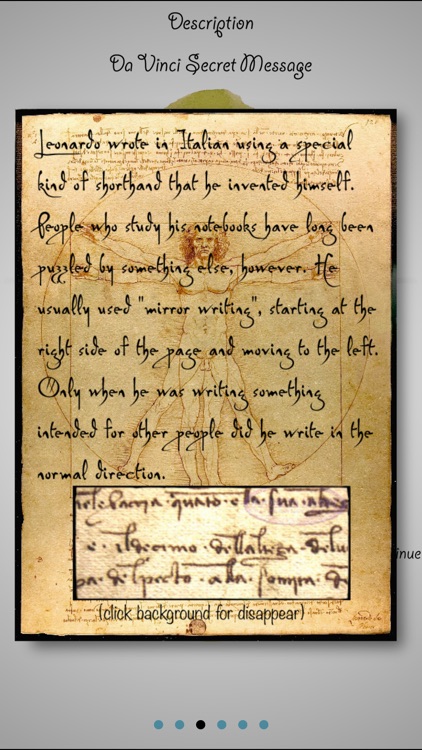 Description
Da Vinci Secret Message
Leonardo wrote in Italian using a special
kind of shorthand that he invented himself.
People who study his notebooks have long been
puzzled by something else, however. He
usually used "mirror writing", starting at the
right side of the page and moving to the left.
Only when he was writing something
intended for other people did he write in the
normal direction.
inue
(click background for disappear)